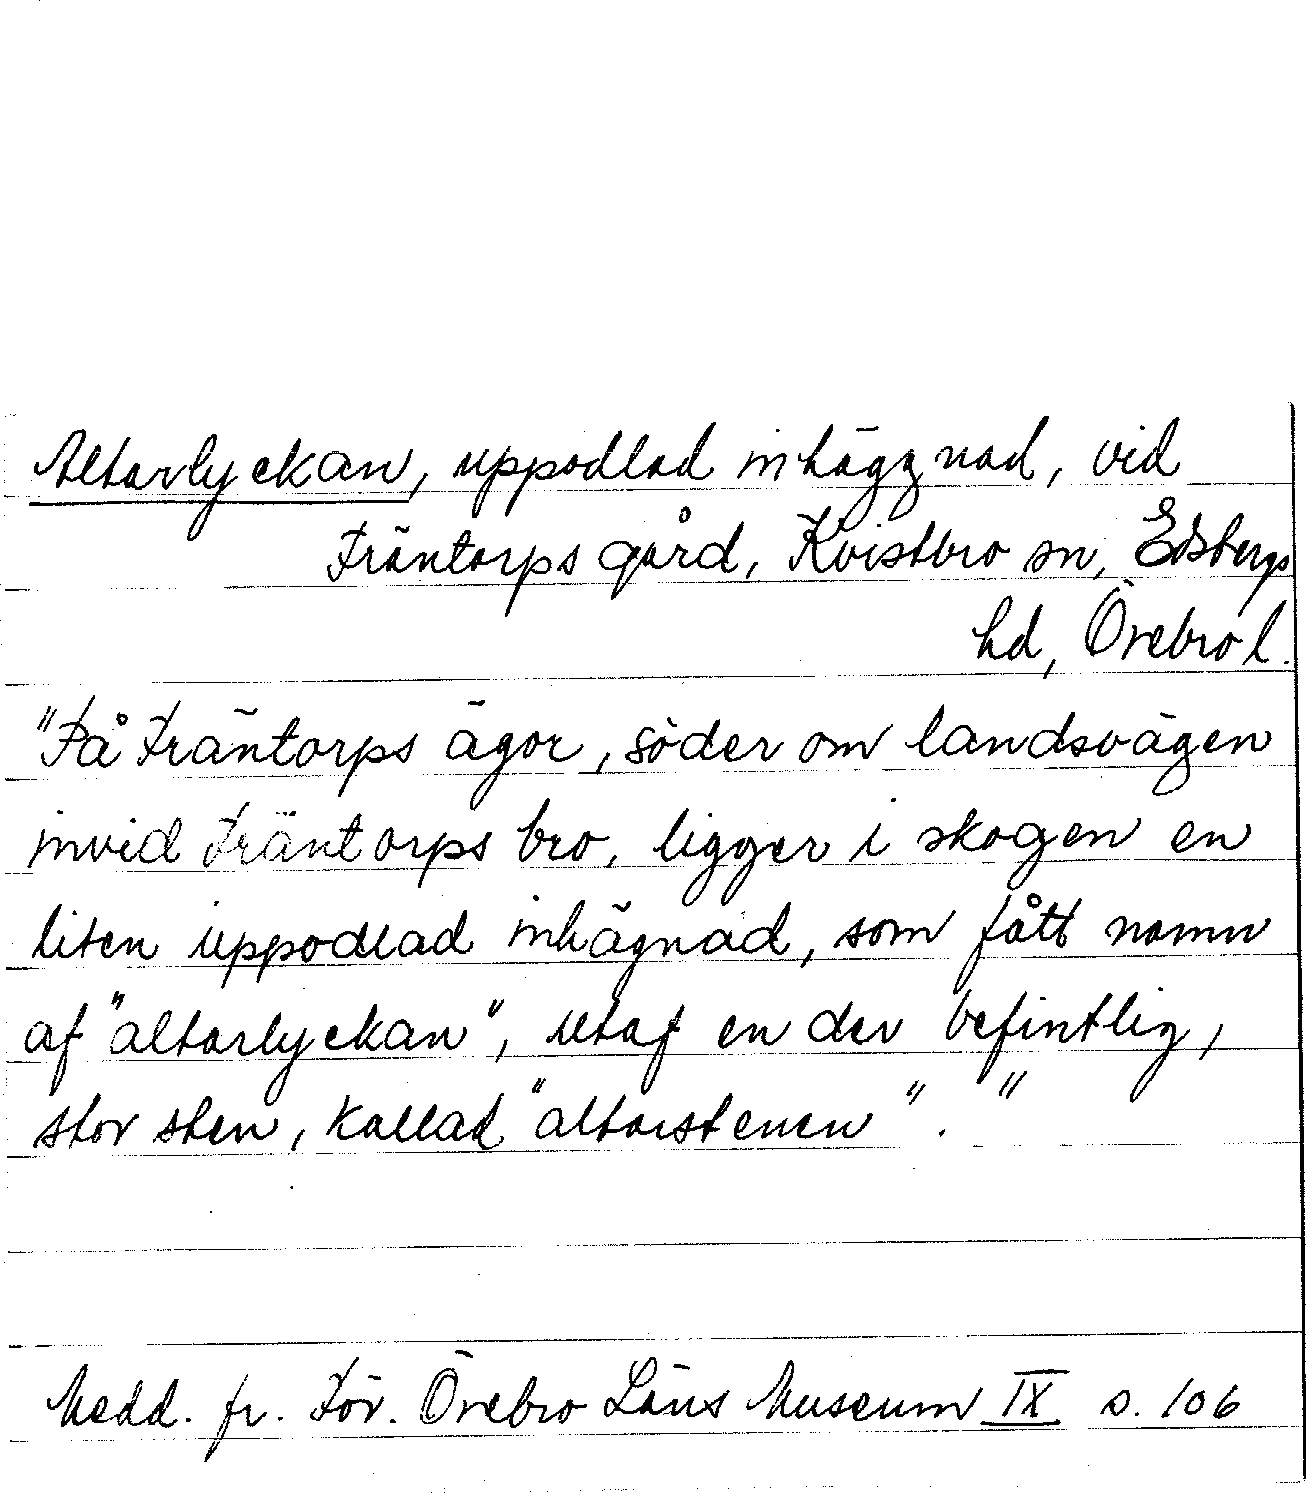 Altarlyckan, uppodlad inhägnad, vid
Fräntorps gård, Kvistbro sn, Edsbergs
hd, Örebro l.
"På Fräntorps ägor, söder om landsvägen
invid Fräntorps bro, ligger i skogen en
liten uppodlad inhägnad, som fått namn
af "altarlyckan", utaf en der befintlig,
stor sten, kallad "altarstenen"."
Medd. fr. För. Örebro Läns Museum IX s. 106